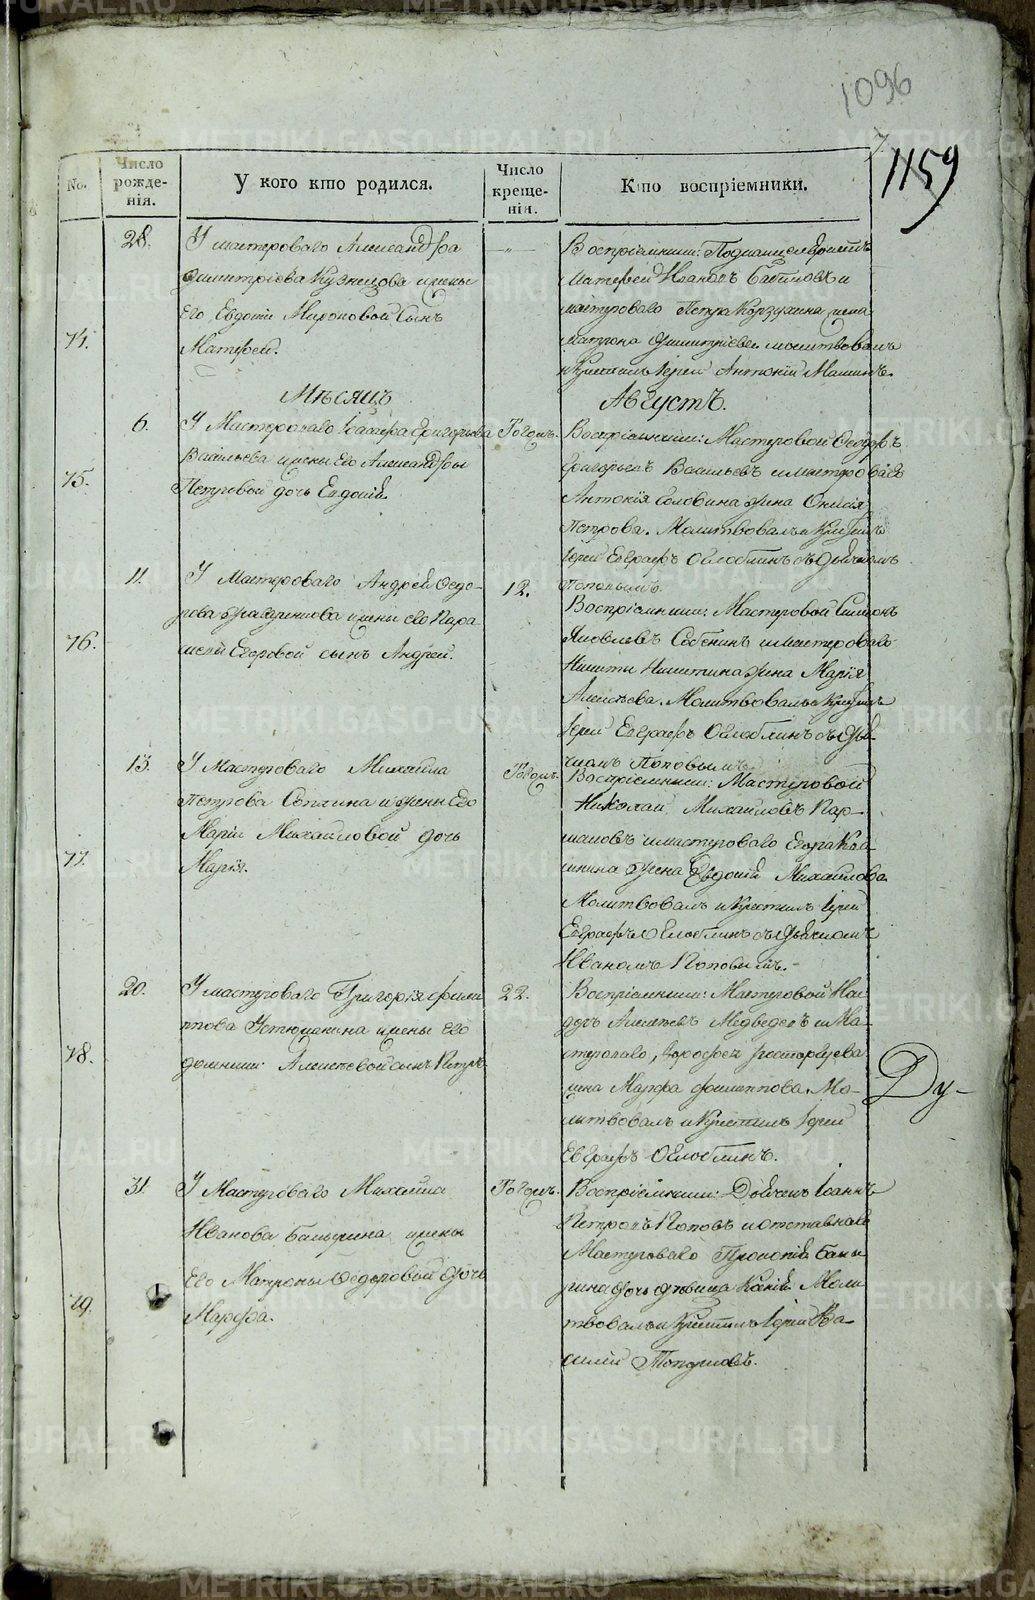 1096
7.
1159
No.
Число рожде-нія.
У кого кто родился.
Число креще-нія.
Кто воспріемники.
28.
74.
У мастероваго Александра
Димитріева Кузнецова и жены
Его Евдокіи Мироновой сынъ
Матфей.
Воспріемники:
Матфей Ивановъ и
мастероваго Петра Корзухина жена
Матрона Димитріева молитвовалъ
и Крестилъ Іерей Антоній
Мѣсяцъ
Августъ.
6.
75.
У Мастероваго Григорьева
Васильева и жены Его Александры
Петровой дочь Евдокія.
Тогожъ.
Воспріемники: Мастеровой Ѳедоръ
Григорьевъ Васильевъ и мастероваго
Антонія Соловина жена
Петрова. Молитвовалъ и Крестилъ
Іерей Евграфъ Оглоблинъ съ Дьячкомъ
Поповымъ.
11.
76.
У Мастероваго Андрея Ѳедо-
рова и жены его Пара-
скевы Егоровой сынъ Андрей.
12.
Воспріемники: Мастеровой Симеонъ
Яковлевъ и мастероваго
Никиты Никитина жена Марія
Алексѣева. Молитвовалъ и Крестилъ
Іерей Евграфъ Оглоблинъ съ Дья-
чкомъ Поповымъ.
13.
77.
У Мастероваго Михаила
Петрова и жены Его
Маріи Михайловой дочь
Марія.
Тогожъ.
Воспріемники: Мастеровой
Николай Михайловъ Пар-
шаковъ и мастероваго Егора
жена Евдокія Михайлова
Молитвовалъ и Крестилъ Іерей
Евграфъ Оглоблинъ съ Дьячкомъ
Иваномъ Поповымъ.-
20.
78.
У мастероваго Григорія Филип-
пова Устюжанина и жены Его
Домники Алексѣевой сынъ Петръ
22.
Воспріемники: Мастеровой
Алексѣевъ Медведевъ и Ма-
стероваго, Расторгуева
жена Марфа Филиппова. Мо-
литвовалъ и Крестилъ Іерей
Евграфъ Оглоблинъ.
Ду-
31.
79.
У Мастероваго Михаила
Иванова и жены
Его Матроны Ѳедоровой Дочь
Марфа.
Тогожъ.
Воспріемники: Дьячекъ Іоаннъ
Петровъ Поповъ и отставнаго
Мастероваго
дочь дѣвица Ксенія. Моли-
твовалъ и Крестилъ Іерей Ва-
силій Топорковъ.
METRIKI.GASO-URAL.RU